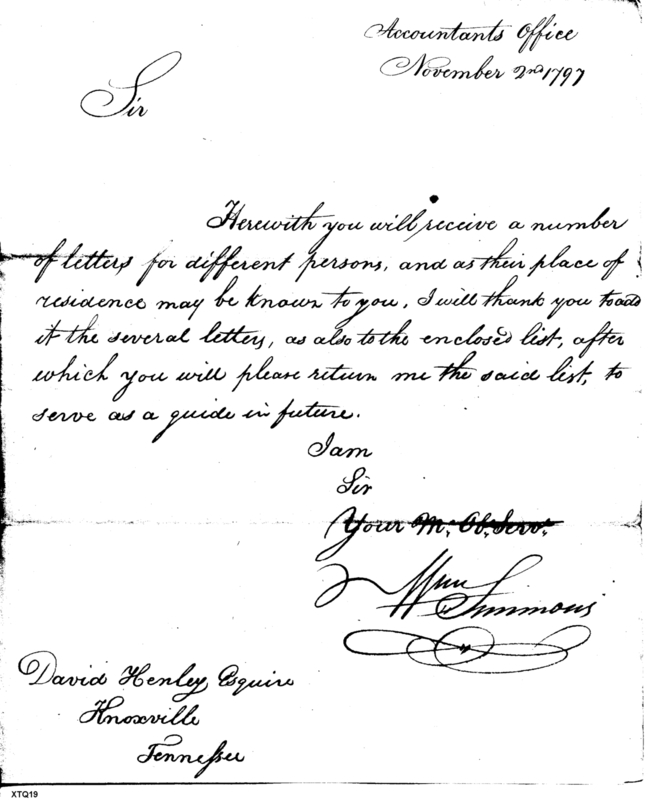 Accountants Office
November 2nd 1797
Sir
Herewith you will receive a number
of letters for different persons, and as their place of
residence may be known to you, I will thank you to add
it the several letters, as also to the enclosed list, after
which you will please return me the said list, to
serve as a guide in future.
I am
Sir
Your Mo. Ob. Serv.
Wm Simmons
David Henley Esquire
Knoxville
Tennessee
XTQ19